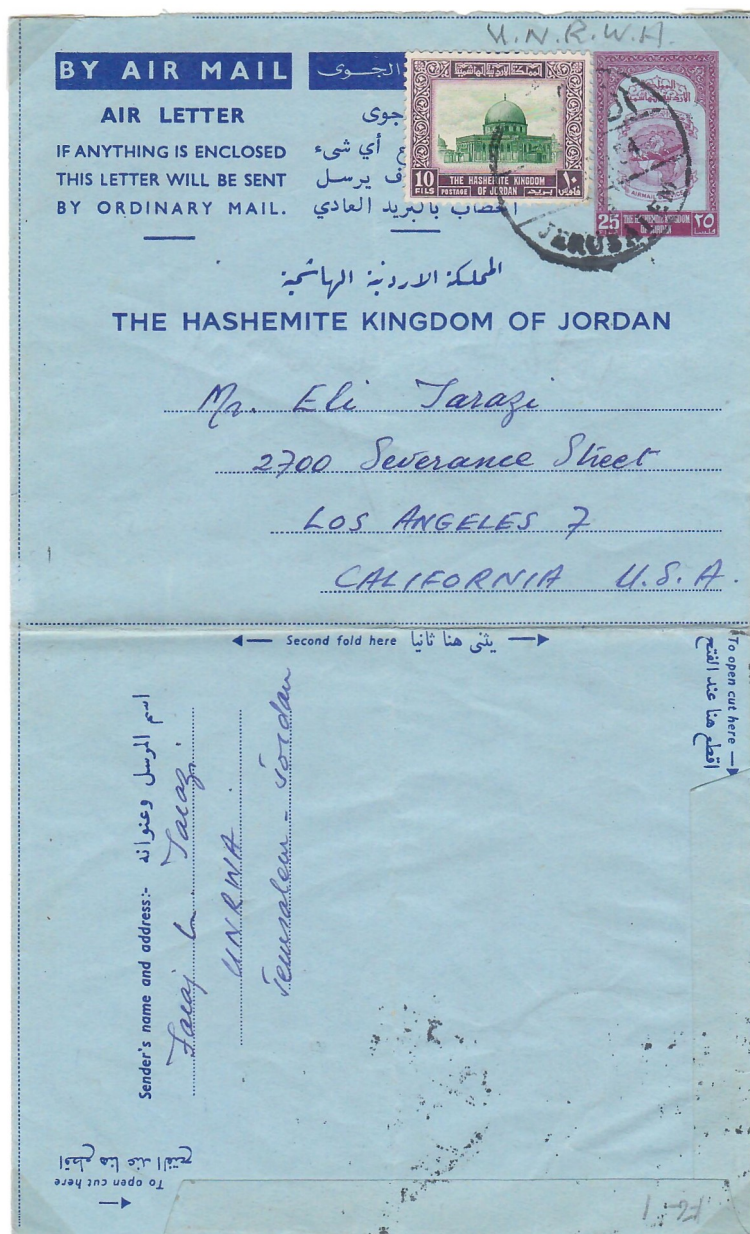 U.N.R.W.A.
BY AIR MAIL
الجوى
AIR LETTER
جوى
IF ANYTHING IS ENCLOSED
أي شىء
THIS LETTER WILL BE SENT
ف يرسل
BY ORDINARY MAIL.
بالبريد العادي
المملكة الاردنية الهاشمية
10
FILS
POSTAGE
THE HASHEMITE KINGDOM
OF JORDAN
بريد
١٠
25
THE HASHEMITE KINGDOM
OF JORDAN
٢٥
JERUSALEM
المملكة الاردنية الهاشمية
THE HASHEMITE KINGDOM OF JORDAN
Mr. Eli Tarazi
2700 Severance Street
LOS ANGELES 7
CALIFORNIA U.S.A.
Second fold here يثنى هنا ثانيا
To open cut here
اقطع هنا عند الفتح
Sender's name and address:- اسم المرسل وعنوانه
Faraj Tarazi
UNRWA
Jerusalem - Jordan
To open cut here
اقطع هنا عند الفتح